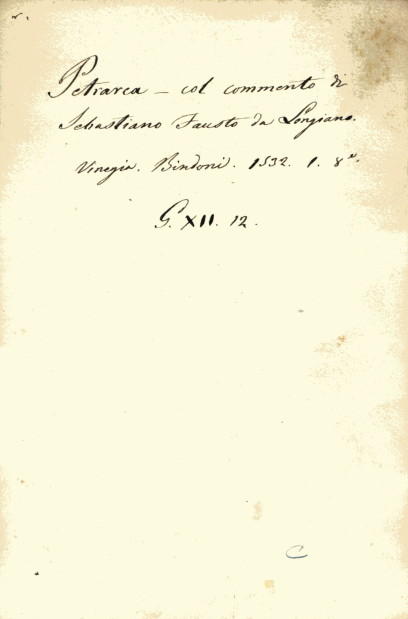 Petrarca – col commento di
Sebastiano Fausto da Longiano.
Vinegia. Bindoni. 1532. 1. 8º.
G. XII. 12.
C